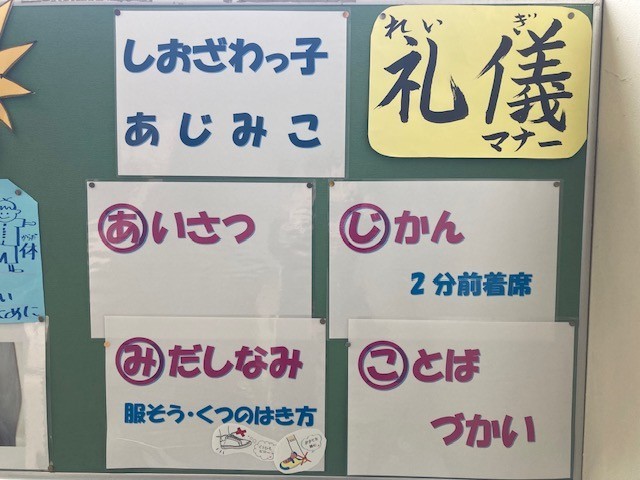 しおざわっ子
あじみこ
れいぎ
礼儀
マナー
あいさつ
じかん
2分前着席
みだしなみ
服そう・くつのはき方
ことば
づかい
休